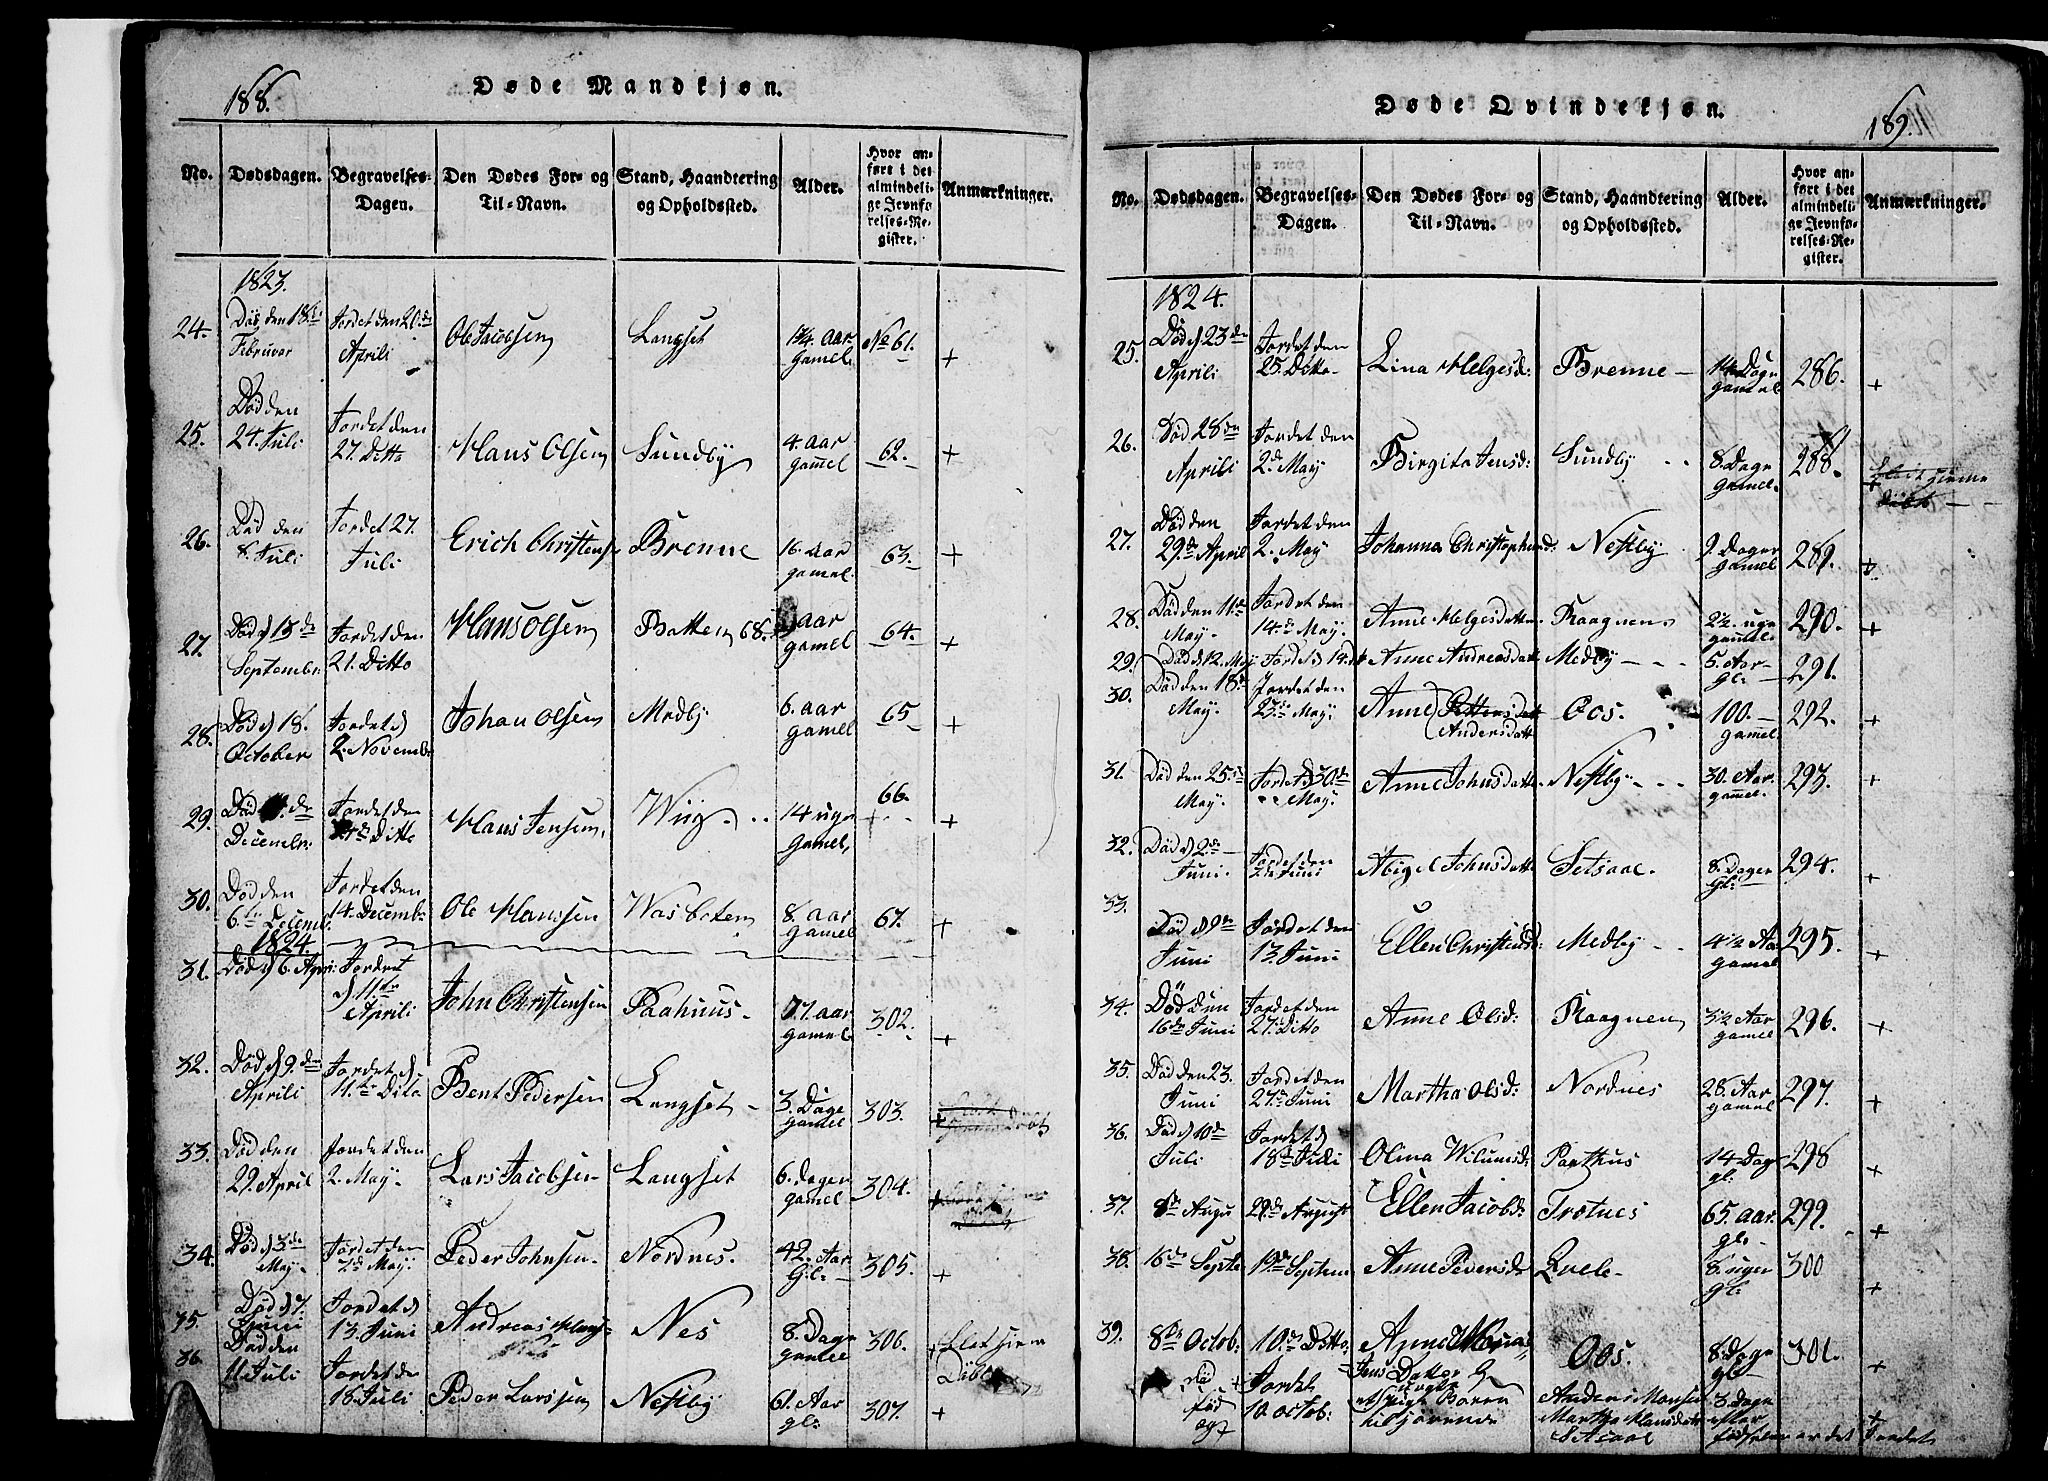 188.
Døde Mandkjøn.
No.
Dødsdagen.
Begravelses-
Dagen.
Den Dødes For- og
Til-Navn.
Stand, Haandtering
og Opholdssted.
Alder.
Hvor an-
ført i det
almindeli-
ge Jevnfø-
relses-Re-
gister.
Anmærkninger.
1823.
24. Død den 18de Februar Jordet den 20de Aprili Ole Jacobsen Langset 1 3/4 aar gamel No 61. +
25. Død den 24. Juli Jordet den 27. Ditto Hans Olsen Sundby 4. aar gamel 62. +
26. Død den 8. Juli Jordet 27. Juli Erich Christens. Brenne 16. aar gamel. 63. +
27. Død d 13de Septembr. Jordet den 21. Ditto Hans Olsen Batten 68. aar gamel 64. +
28. Død d 18. October Jordet d 2. Novembr. Johan Olsen Medby 6. aar gamel 65 +
29. Død de Decembr. Jordet den Ditto Hans Jensen Wiig 14 uger gamel, 66. +
30. Død den 6te Decemb. Jordet den 14. Decemb. Ole Hanssen Wasboten 8. aar gamel 67. +
1824.
31. Død d 6. April Jordet d 11te Aprili John Christensen Paahuus. 77. aar gamel 302. +
32. Død d 9. den Aprili Jordet d 11te Dito Bent Pedersen Langset 3. Dage gamel 303. +
33. Død den 29. April Jordet den 2. May Lars Jacobsen Langset 6. dager gamel 304. +
34. Død d 3de May Jordet den 7de May. Peder Johnsen Nordnes. 42. Aar Gl: 305. +
35 Død d 7. Juni Jordet d 13 Juni Andreas Hans- Nes 8. Dage gamel 306. +
36 Død den 11 Juli Jordet de 18 Juli Peder Larssen Nestby 61. Aar gl: 307. +
Døde Qvindekjøn.
189.
No.
Dødsdagen.
Begravelses-
Dagen.
Den Dødes For- og
Til-Navn.
Stand, Haandtering
og Opholdssted.
Alder.
Hvor an-
ført i det
almindeli-
ge Jevnfø-
relses-Re-
gister.
Anmærkninger.
1824.
25. Død d 23de Aprili Jordet den 25. Ditto Lina Helgesd: Brenne 14 Dage gamel 286. +
26. Død 28de Aprili Jordet den 2. May Birgita Jensd: Sundby 8. Dage gamel. 288. +
27. Død den 29. de April Jordet den 2. May Johanna Christophersd: Nestby 9. Dager gamel 289. +
28. Død den 11. de May Jordet den 14. de May. Anne Helgesdatter Kaagnen 2 1/2 uge gamel. 290. +
29. Død d 12. May Jordet d 14. de Anne Andreasdatt Medby 5. Aar gl: 291.
30. Død den 18. de May. Jordet den 23. de May Anne Pettersdatt Andersdatt Oos. 100. gamel 292. +
31. Død den 25. de May Jordet d 30de May Anne Johnsdatter Nestby 30. Aar. gamel. 293. +
32. Død d 2. de Juni Jordet den Juni Abigel Johnsdatt Setsaae. 8. Dager Gl: 294. +
33. Død d 9de Juni Jordet den 13. Juni Ellen Christensd: Medby 4 1/2 Aar gamel 295. +
34. Død Den 16de Juni Jordet den 27. Ditto Anne Olsd: Kaagnen 3 1/2 Aar gamel 296. +
35. Død den 23. Juni Jordet den 27. Juni Martha Olsd: Nordnes 28. Aar gamel 297. +
36. Død d 10de Juli Jordet d 18de Juli Olina Wilumsd: Paathus 14 Dag gl: 298 +
37. 8de Augu 29de August Ellen Jacobsd: Trotnes 65. aar. gl. 299. +
38. 16de Septe 19de Septem Anne Pedersd Quele 8. uger gl: 300 +
39. 8de Octob: 10de Ditto Anne Oos. 8. Dage gl 301. +
Død Jordet Datter
født 10 octob: Anders Hansen 3. Dage
og Martha Hansdatter efter
Setsaae fødselen er det Jordet